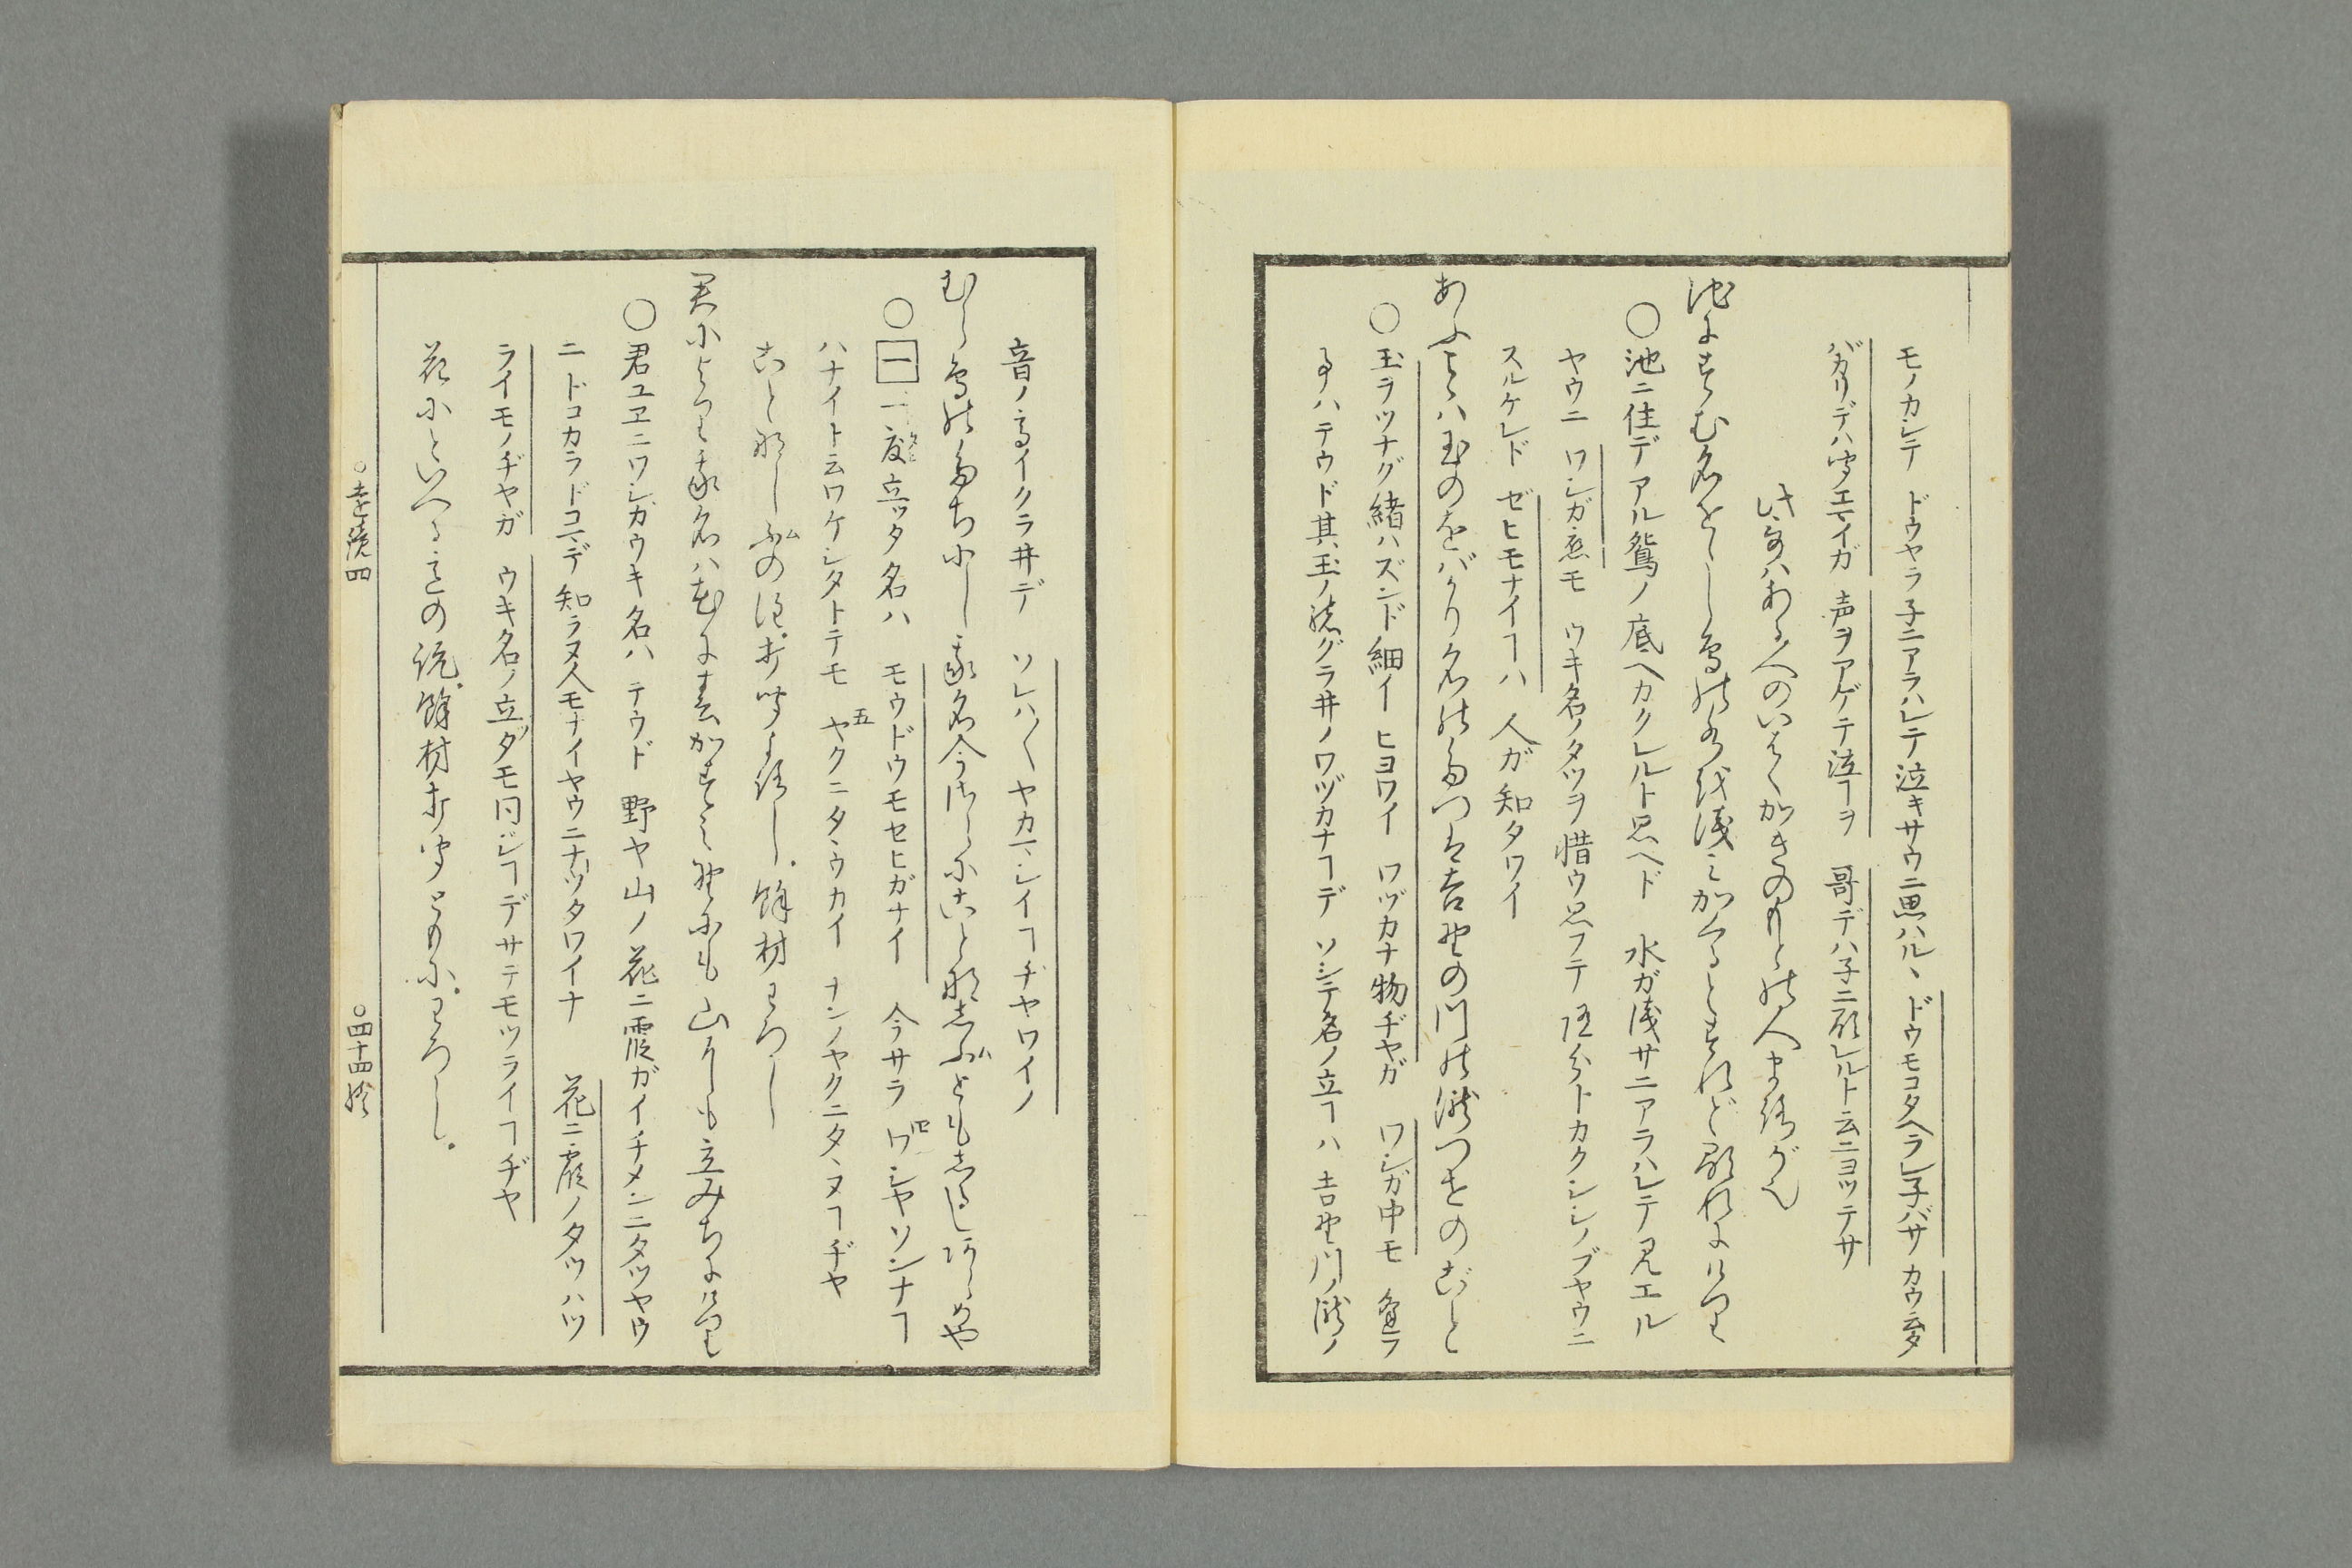 モノカシテ　ドウヤラ子ニアラハレテ泣キサウニ思ハルヽ　ドウモコタヘラレ子バサ　カウ云タ
バカリデハ聞エマイガ　声ヲアゲテ泣ヿヲ　哥デハ子ニアラハレルト云ニヨッテサ
此哥ハある人のいはくかきのもとの人まろが也
池にすむ名ををし鳥の水を浅みかくるとすれど顕れにけり
○池ニ住デアル鴛ノ底ヘカクレルト思ヘド　水ガ浅サニアラハレテ見エル
ヤウニ　ワシガ恋モ　ウキ名ノタツヲ惜ウ思フテ　随分トカクシシノブヤウニ
スルケレド　ゼヒモナイヿハ　人ガ知タワイ
あふことハ玉のをばかり名のたつは吉野の川の瀧つせのごと
○玉ヲツナグ緒ハズンド細イ　ヒヨワイ　ワヅカナ物ヂヤガ　ワシガ中モ　逢フ
事ハテウド其玉ノ緒グラ井ノワヅカナヿデ　ソシテ名ノ立ヿハ　吉野川ノ瀧ノ
音ノ高イクラ井デ　ソレハ〱ヤカマシイヿヂヤワイノ
むら鳥のたちにし我名今さらにことなしぶともしるしあらめや
○一　一度立ッタ名ハ　モウドウモセヒガナイ　今サラ四ワシヤソンナヿ
ハナイト云ワケシタトテモ　五ヤクニタヽウカイ　ナンノヤクニタヽヌヿヂヤ
ことなしぶの注打聞よろし。餘材わろし
君によりて我名ハ花に春がすみ野にも山にも立みちにけり
○君ユヱニワシガウキ名ハ　テウド　野ヤ山ノ花ニ霞ガイチメンニタツヤウ
ニドコカラドコマデ知ラヌ人モナイヤウニナッタワイナ　花ニ霞ノタツハツ
ライモノヂヤガ　ウキ名ノ立ツタモ同ジヿデサテモツライヿヂヤ
花にといへることの説。餘材打聞ともに。わろし。
○遠鏡四
○四十四終